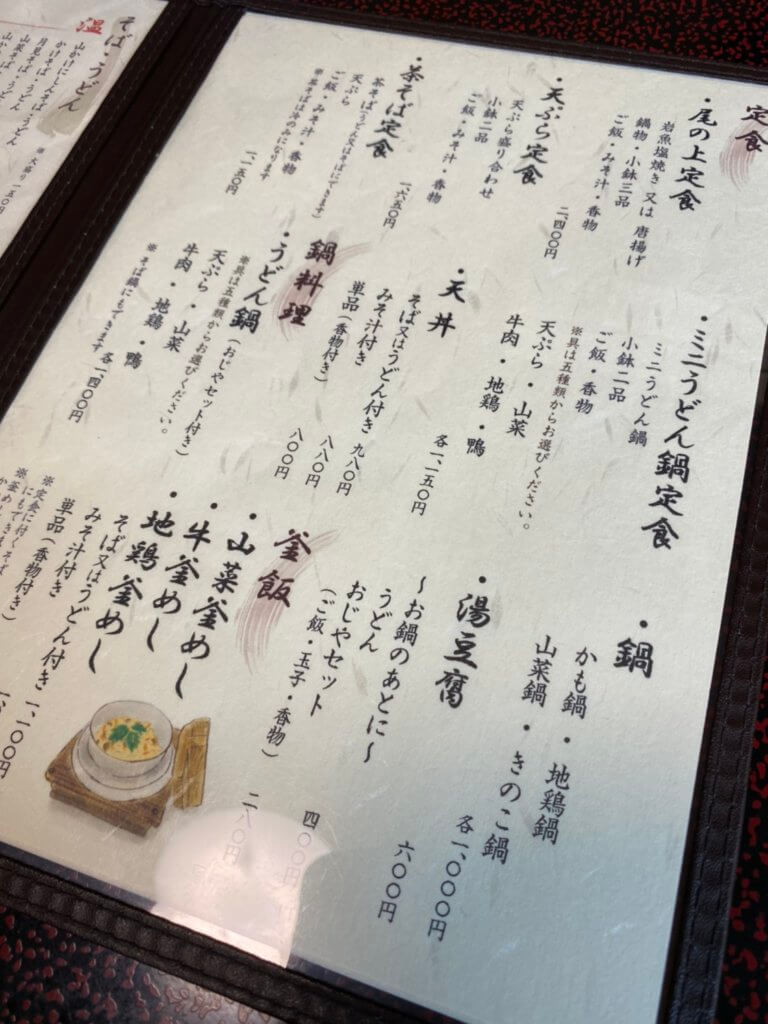 定食
・尾の上定食
岩魚塩焼き 又は 唐揚げ
鍋物・小鉢三品
ご飯・みそ汁・香物
二、四〇〇円
・天ぷら定食
天ぷら盛り合わせ
小鉢二品
ご飯・みそ汁・香物
一、六五〇円
・茶そば定食
茶そば(うどん又はそばにできます)
天ぷら
ご飯・みそ汁・香物
※茶そばは冷のみになります
一、一五〇円
・ミニうどん鍋定食
ミニうどん鍋
小鉢二品
ご飯・香物
※具は五種類からお選びください。
天ぷら・山菜
牛肉・地鶏・鴨
各一、一五〇円
・天丼
そば又はうどん付き 九八〇円
みそ汁付き 八八〇円
単品(香物付き) 八〇〇円
鍋料理
・うどん鍋(おじやセット付き)
※具は五種類からお選びください。
天ぷら・山菜
牛肉・地鶏・鴨
※そば鍋にもできます 各一、四〇〇円
・鍋
かも鍋・地鶏鍋
山菜鍋・きのこ鍋
各一、〇〇〇円
・湯豆腐
六〇〇円
～お鍋のあとに～
うどん
おじやセット 四〇〇円
(ご飯・玉子・香物) 二八〇円
釜飯
・山菜釜めし
・牛釜めし
・地鶏釜めし
そば又はうどん付き 一、一〇〇円
みそ汁付き
単品(香物付き)
※定食に付くそば
にもできま
※釜めし
そば・うどん
温
山かけにしんそば
かけそば・うどん
月見そば・うどん
山菜そば・うどん
※大盛り 一五〇円